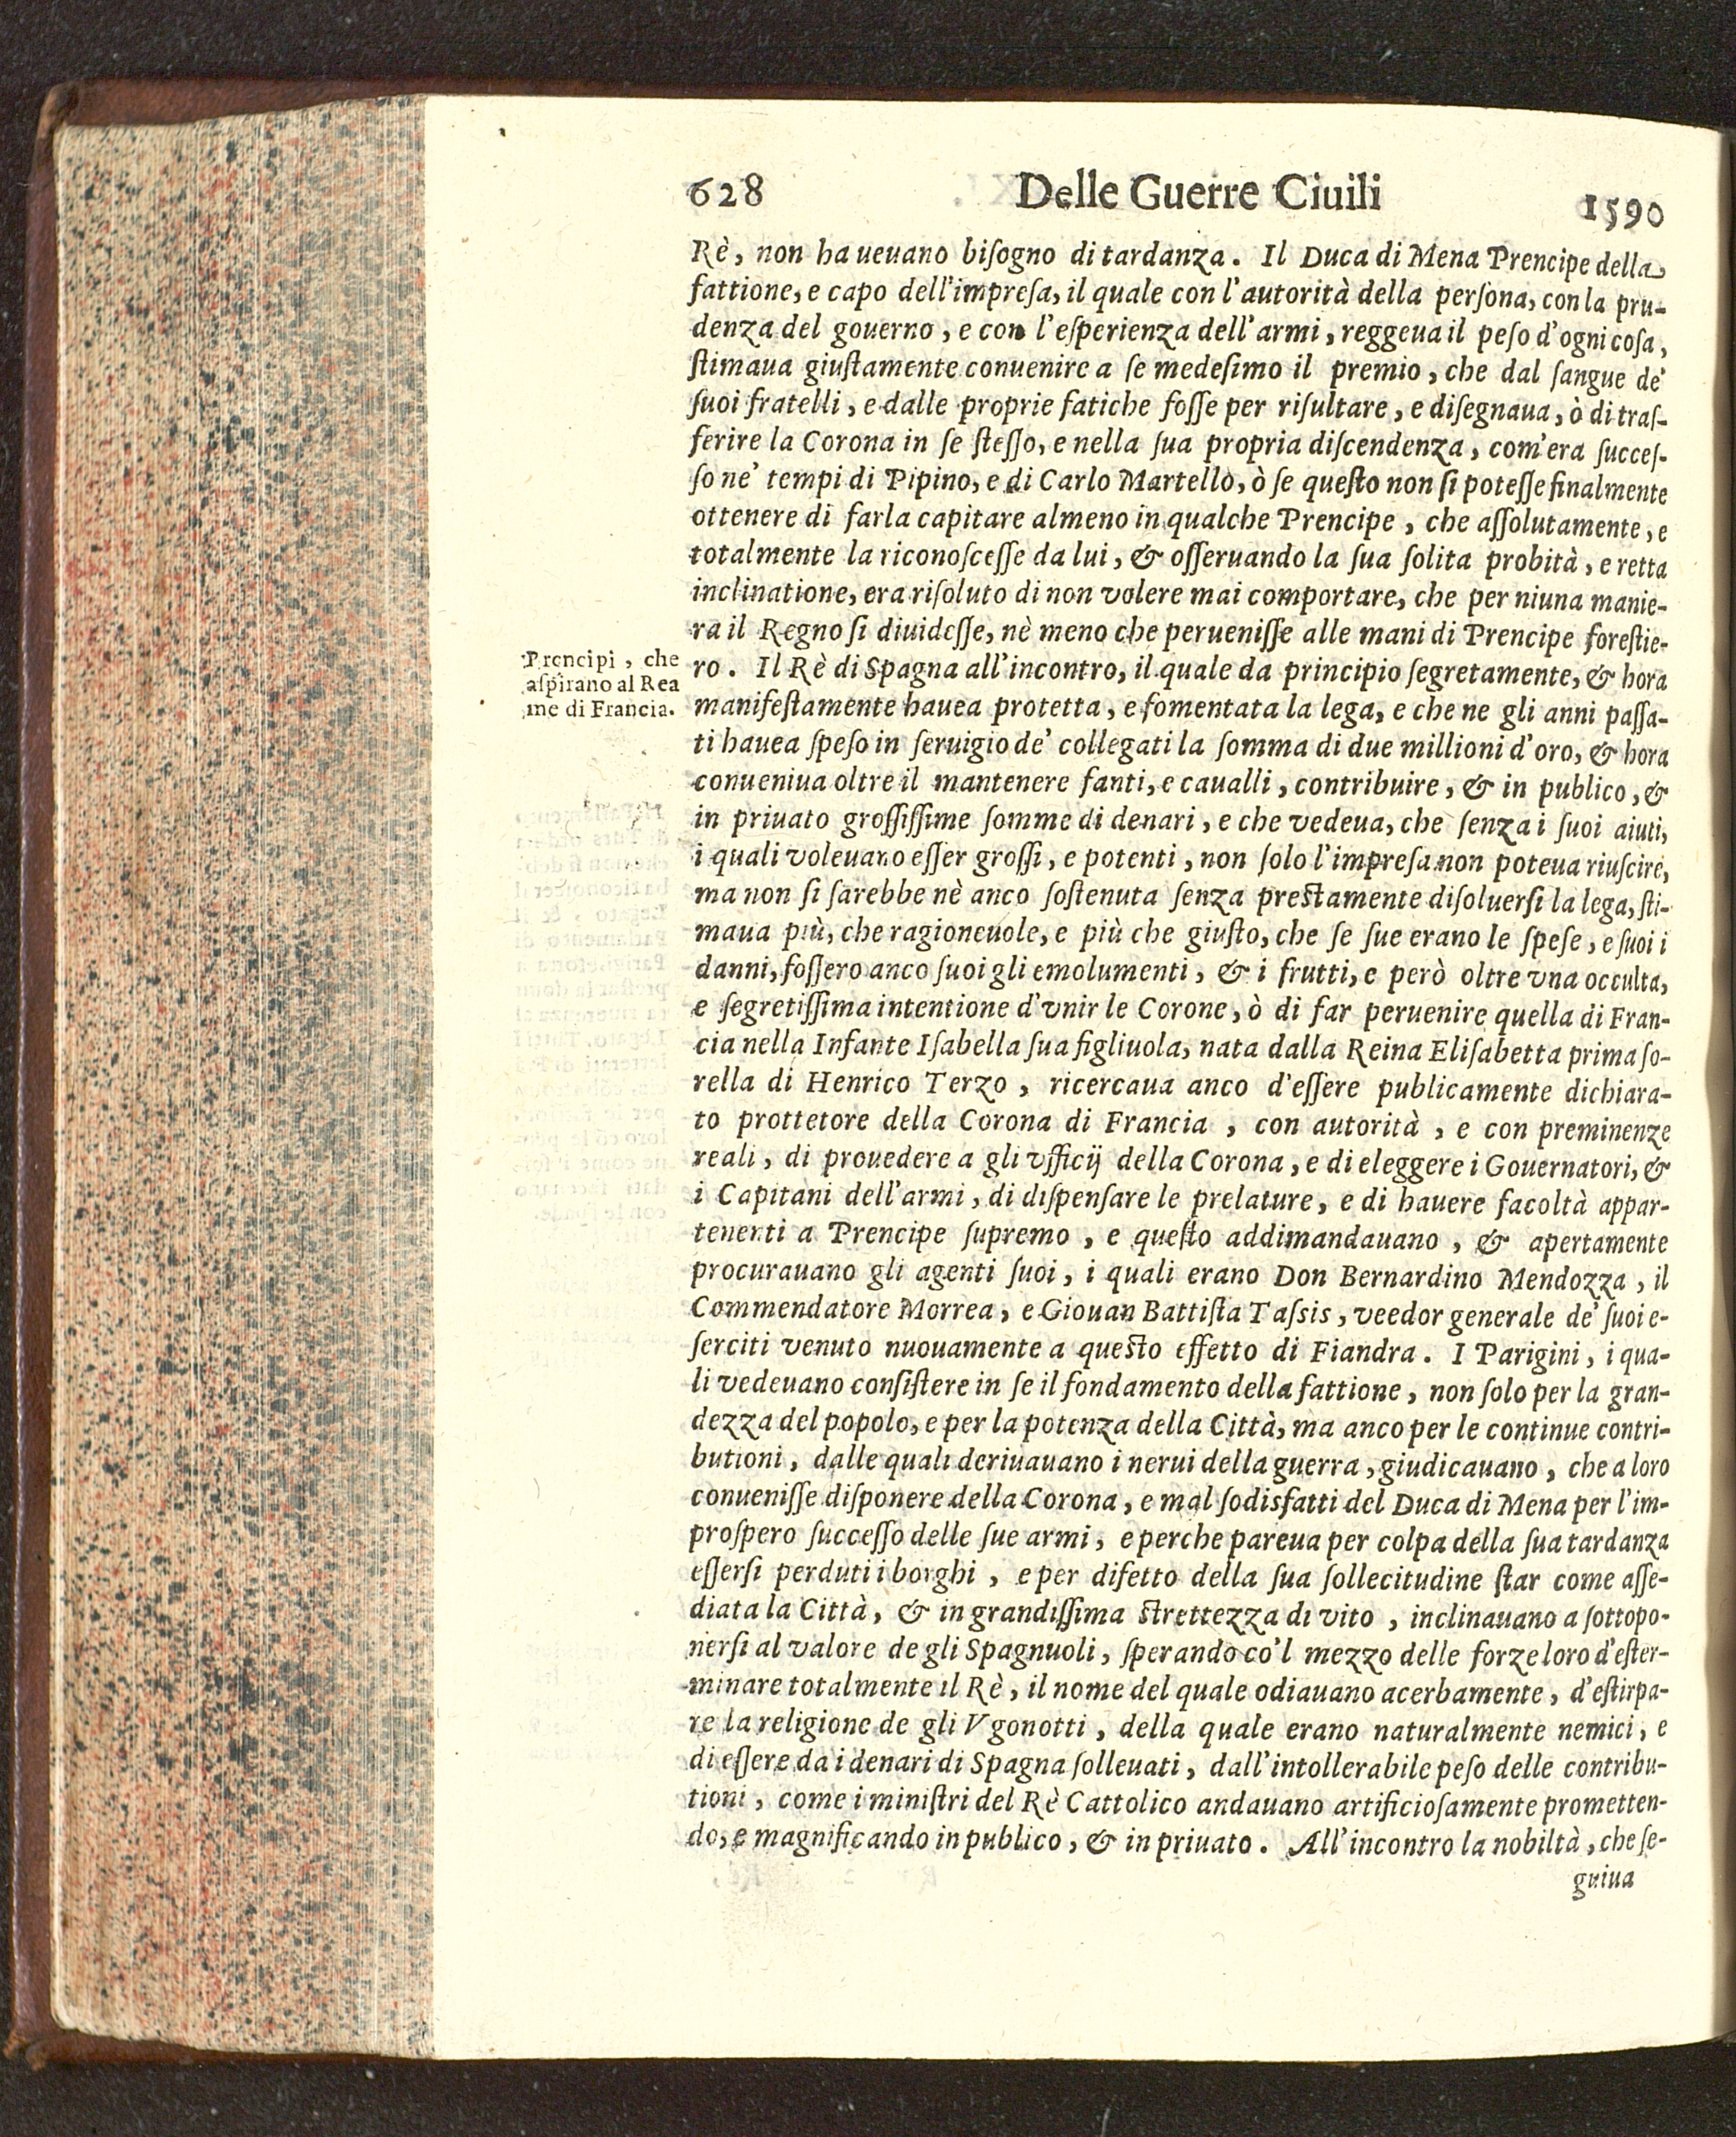 628 Delle Guerre Ciuili 1590
Rè, non haueuano biſogno di tardanza. Il Duca di Mena Prencipe della
fattione, e capo dell'impreſa, il quale con l'autorità della perſona, con la pru-
denza del gouerno, e con l'eſperienza dell'armi, reggeua il peſo d'ogni coſa,
ſtimaua giuſtamente conuenire a ſe medeſimo il premio, che dal ſangue de'
ſuoi fratelli, e dalle proprie fatiche foſſe per riſultare, e diſegnaua, ò di traſ-
ferire la Corona in ſe ſteſſo, e nella ſua propria diſcendenza, com'era ſucceſ-
ſo ne' tempi di Pipino, e di Carlo Martello, ò ſe queſto non ſi poteſſe finalmente
ottenere di farla capitare almeno in qualche Prencipe, che aſſolutamente, e
totalmente la riconoſceſſe da lui, & oſſeruando la ſua ſolita probità, e retta
inclinatione, era riſoluto di non volere mai comportare, che per niuna manie-
ra il Regno ſi diuideſſe, nè meno che perueniſſe alle mani di Prencipe foreſtie-
Prencipi, che
aſpirano al Rea
me di Francia.
ro. Il Rè di Spagna all'incontro, il quale da principio ſegretamente, & hora
manifeſtamente hauea protetta, e fomentata la lega, e che ne gli anni paſſa-
ti hauea ſpeſo in ſeruigio de' collegati la ſomma di due millioni d'oro, & hora
conueniua oltre il mantenere fanti, e caualli, contribuire, & in publico, &
in priuato groſſiſſime ſomme di denari, e che vedeua, che ſenza i ſuoi aiuti,
i quali voleuano eſſer groſſi, e potenti, non ſolo l'impreſa non poteua riuſcire,
ma non ſi ſarebbe nè anco ſoſtenuta ſenza preſtamente diſoluerſi la lega, ſti-
maua più, che ragioneuole, e più che giuſto, che ſe ſue erano le ſpeſe, e ſuoi i
danni, foſſero anco ſuoi gli emolumenti, & i frutti, e però oltre vna occulta,
e ſegretiſſima intentione d'vnir le Corone, ò di far peruenire quella di Fran-
cia nella Infante Iſabella ſua figliuola, nata dalla Reina Eliſabetta prima ſo-
rella di Henrico Terzo, ricercaua anco d'eſſere publicamente dichiara-
to prottetore della Corona di Francia, con autorità, e con preminenze
reali, di prouedere a gli vfficij della Corona, e di eleggere i Gouernatori, &
i Capitani dell'armi, di diſpenſare le prelature, e di hauere facoltà appar-
tenenti a Prencipe ſupremo, e queſto addimandauano, & apertamente
procurauano gli agenti ſuoi, i quali erano Don Bernardino Mendozza, il
Commendatore Morrea, e Giouan Battiſta Taſsis, veedor generale de' ſuoi e-
ſerciti venuto nuouamente a queſto effetto di Fiandra. I Parigini, i qua-
li vedeuano conſiſtere in ſe il fondamento della fattione, non ſolo per la gran-
dezza del popolo, e per la potenza della Città, ma anco per le continue contri-
butioni, dalle quali deriuauano i nerui della guerra, giudicauano, che a loro
conueniſſe diſponere della Corona, e mal ſodisfatti del Duca di Mena per l'im-
proſpero ſucceſſo delle ſue armi, e perche pareua per colpa della ſua tardanza
eſſerſi perduti i borghi, e per difetto della ſua ſollecitudine ſtar come aſſe-
diata la Città, & in grandiſſima ſtrettezza di vito, inclinauano a ſottopo-
nerſi al valore de gli Spagnuoli, ſperando co'l mezzo delle forze loro d'eſter-
minare totalmente il Rè, il nome del quale odiauano acerbamente, d'eſtirpa-
re la religione de gli Vgonotti, della quale erano naturalmente nemici, e
di eſſere da i denari di Spagna ſolleuati, dall'intollerabile peſo delle contribu-
tioni, come i miniſtri del Rè Cattolico andauano artificioſamente prometten-
do, e magnificando in publico, & in priuato. All'incontro la nobiltà, che ſe-
guiua